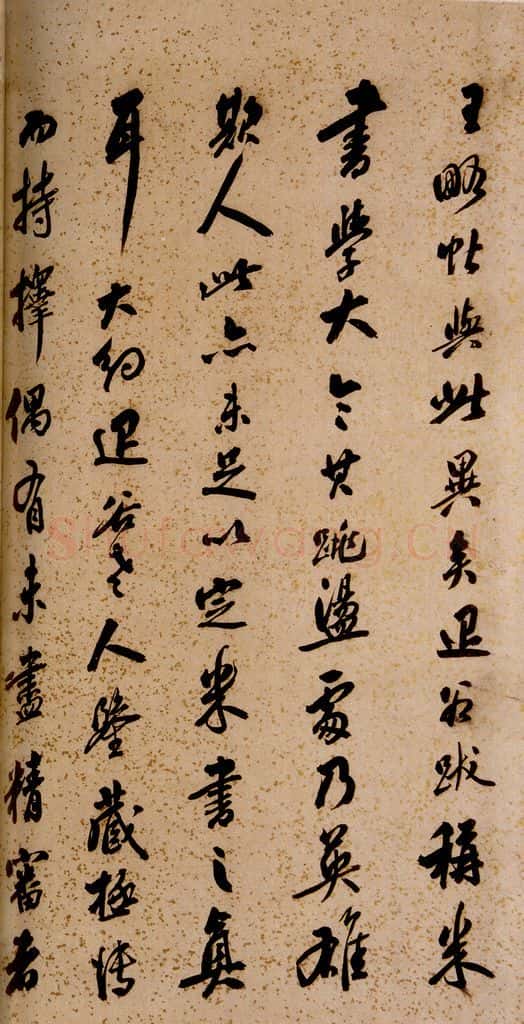 王略帖與此異矣退谷跋稱米
書學大令其跳盪處乃英雄
欺人此亦未足以定米書之真
耳大約退谷老人鑒藏極博
而持擇偶有未盡精審者